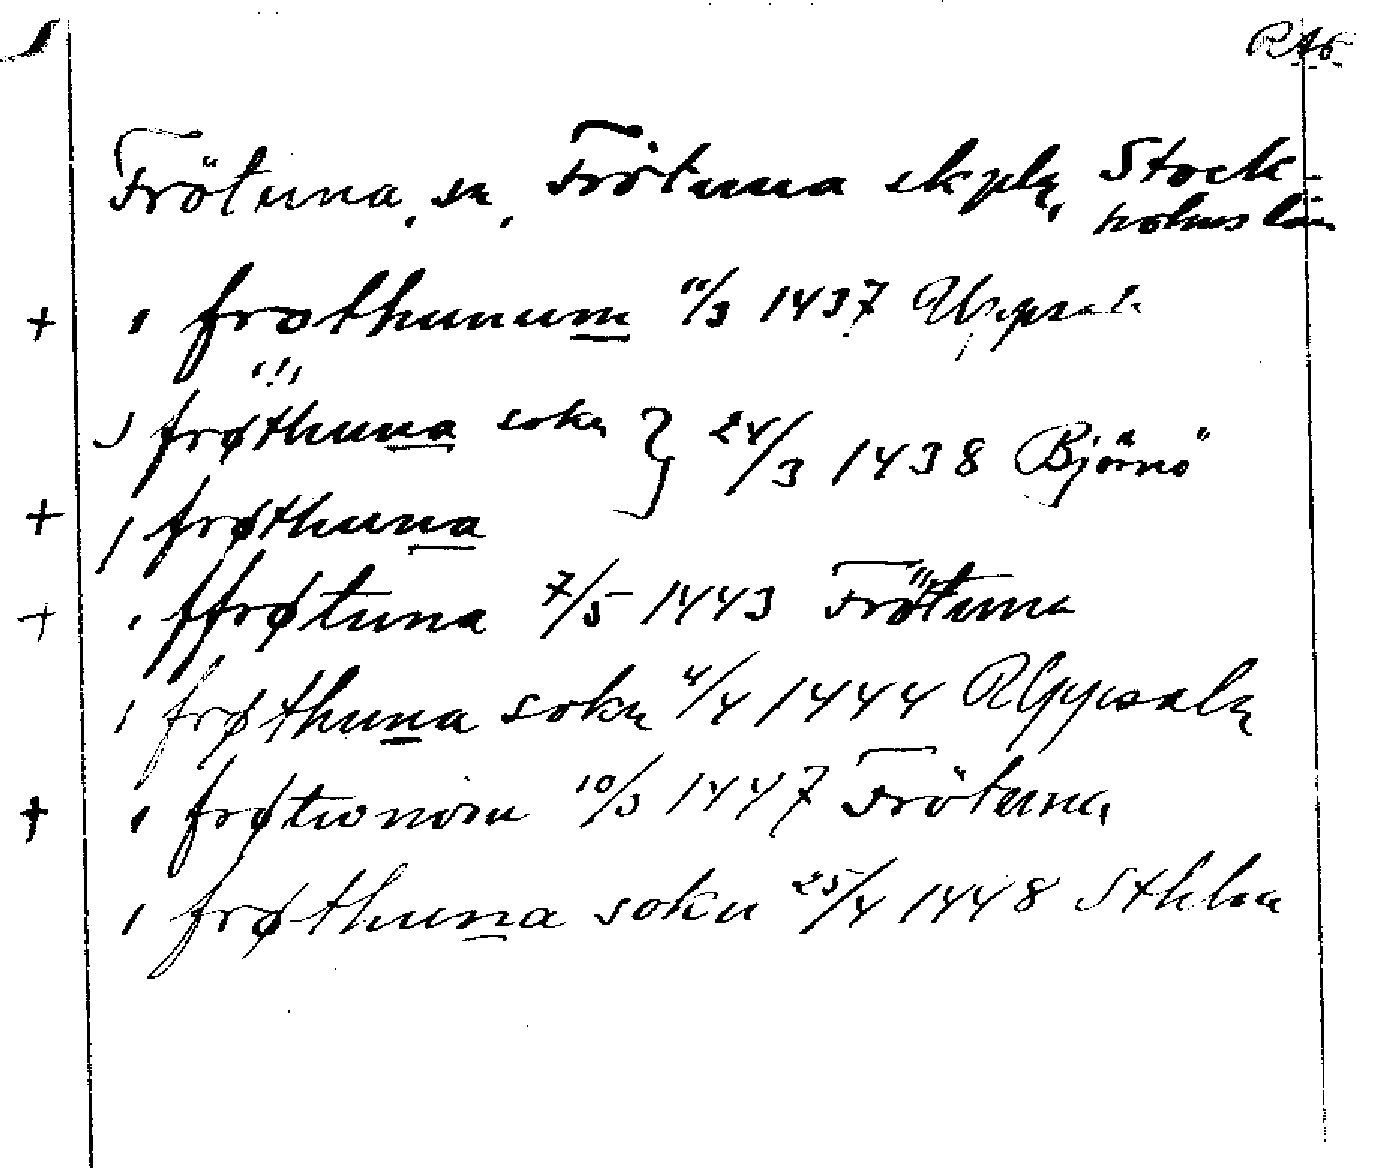 RAp
Frötuna, sn, Frötuna skpl, Stock-
holms län
+ i frothunum 11/3 1437 Uppsala
i frøthuna sokn } 24/3 1438 Björnö
+ i frøthuna
+ i ffrøtuna 7/5 1443 Frötuna
i frøthuna sokn 4/4 1444 Uppsala
+ i frøtwnom 10/5 1447 Frötuna
i frøthuna sokn 25/4 1448 Sthlm